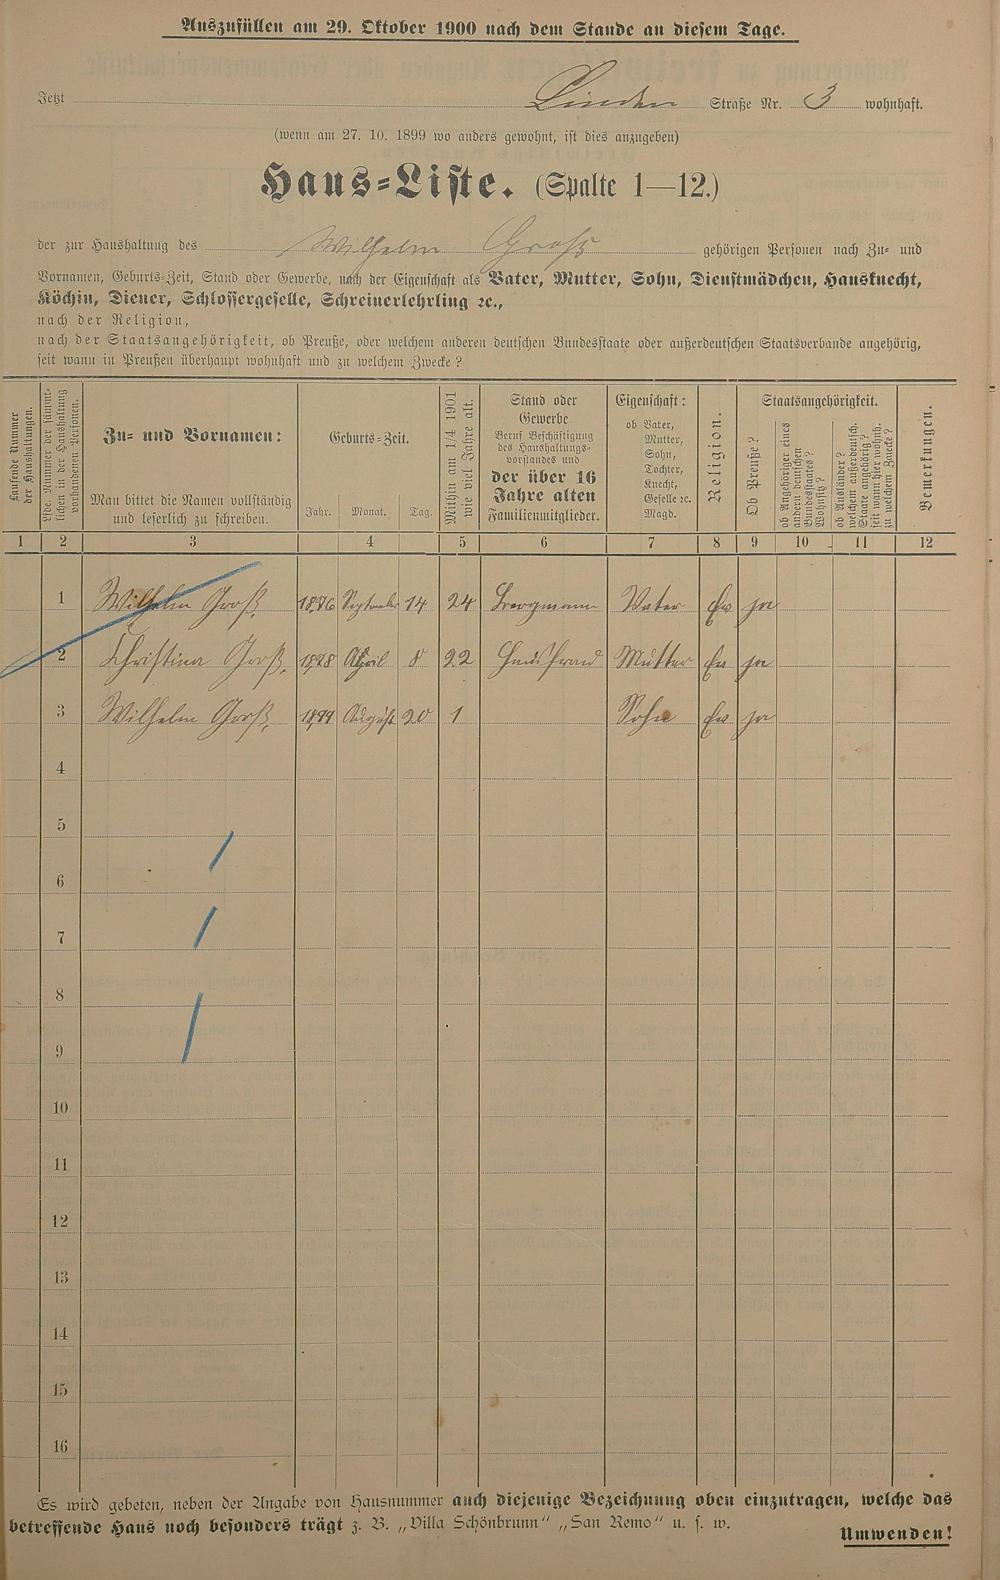 Auszufüllen am 29. Oktober 1900 nach dem Stande an diesem Tage.
Jetzt Linden Straße Nr. 3 wohnhaft.
(wenn am 27. 10. 1899 wo anders gewohnt, ist dies anzugeben)
Haus-Liste. (Spalte 1—12.)
der zur Haushaltung des Wilhelm Groß gehörigen Personen nach Zu- und
Vornamen, Geburts-Zeit, Stand oder Gewerbe, nach der Eigenschaft als Vater, Mutter, Sohn, Dienstmädchen, Hausknecht,
Köchin, Diener, Schlossergeselle, Schreinerlehrling ꝛc.,
nach der Religion,
nach der Staatsangehörigkeit, ob Preuße, oder welchem anderen deutschen Bundesstaate oder außerdeutschen Staatsverbande angehörig,
seit wann in Preußen überhaupt wohnhaft und zu welchem Zwecke?
Laufende Nummer
der Haushaltungen.
Lfde. Nummer der sämmt-
lichen in der Haushaltung
vorhandenen Personen.
Zu- und Vornamen:
Man bittet die Namen vollständig
und leserlich zu schreiben.
Geburts-Zeit.
Jahr. Monat. Tag.
Mithin am 1/4 1901
wie viel Jahre alt.
Stand oder
Gewerbe
Beruf Beschäftigung
des Haushaltungs-
vorstandes und
der über 16
Jahre alten
Familienmitglieder.
Eigenschaft:
ob Vater,
Mutter,
Sohn,
Tochter,
Knecht,
Geselle ꝛc.
Magd.
Religion.
Staatsangehörigkeit.
Ob Preuße?
ob Angehöriger eines
andern deutschen
Bundesstaates?
Wohnsitz?
ob Ausländer?
welchem außerdeutsch.
Staate angehörig?
seit wann hier wohnh.
zu welchem Zwecke?
Bemerkungen.
1 2 3 4 5 6 7 8 9 10 11 12
1 Wilhelm Groß. 1876 September 14 24 Bergmann Vater Ev ja
2 Christina Groß. 1878 April 8 22 Hausfrau Mutter Ev ja
3 Wilhelm Groß. 1899 August 20 1 Sohn Ev ja
4
5
6
7
8
9
10
11
12
13
14
15
16
Es wird gebeten, neben der Angabe von Hausnummer auch diejenige Bezeichnung oben einzutragen, welche das
betreffende Haus noch besonders trägt z. B. „Villa Schönbrunn" „San Remo" u. s. w.
Umwenden!